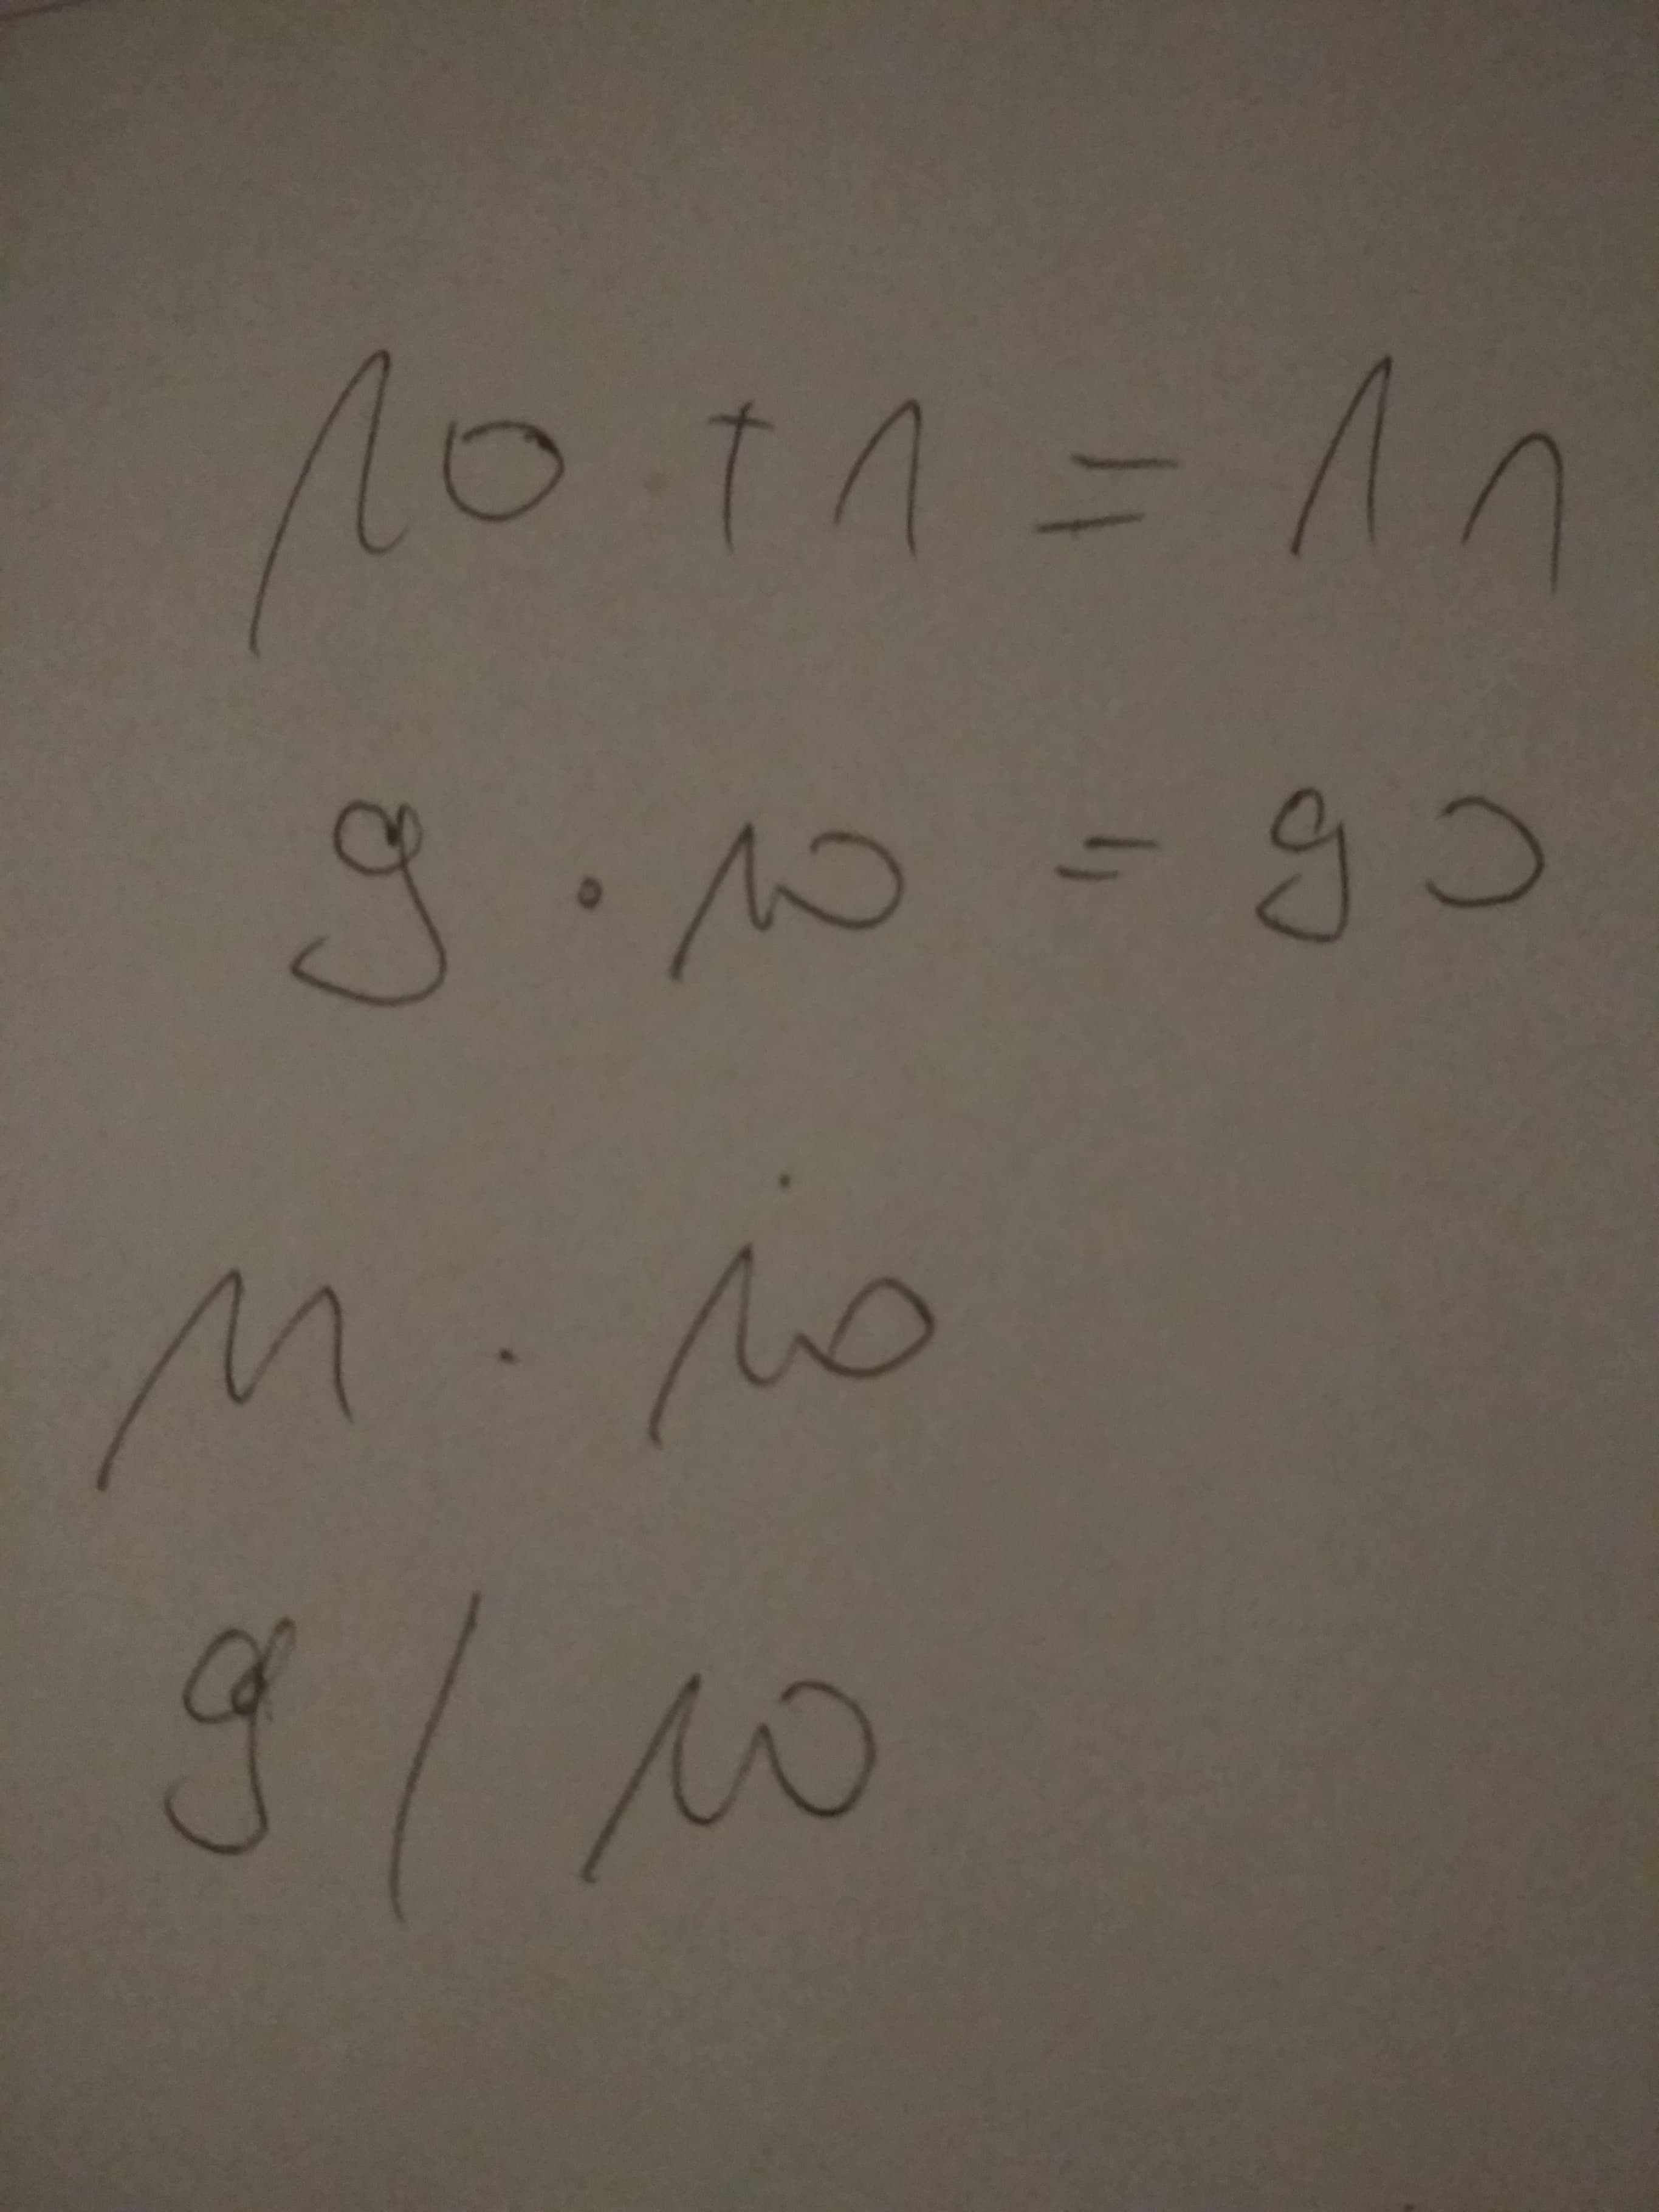 10 + 1 = 11
9 · 10 = 90
11 · 10
9 / 10